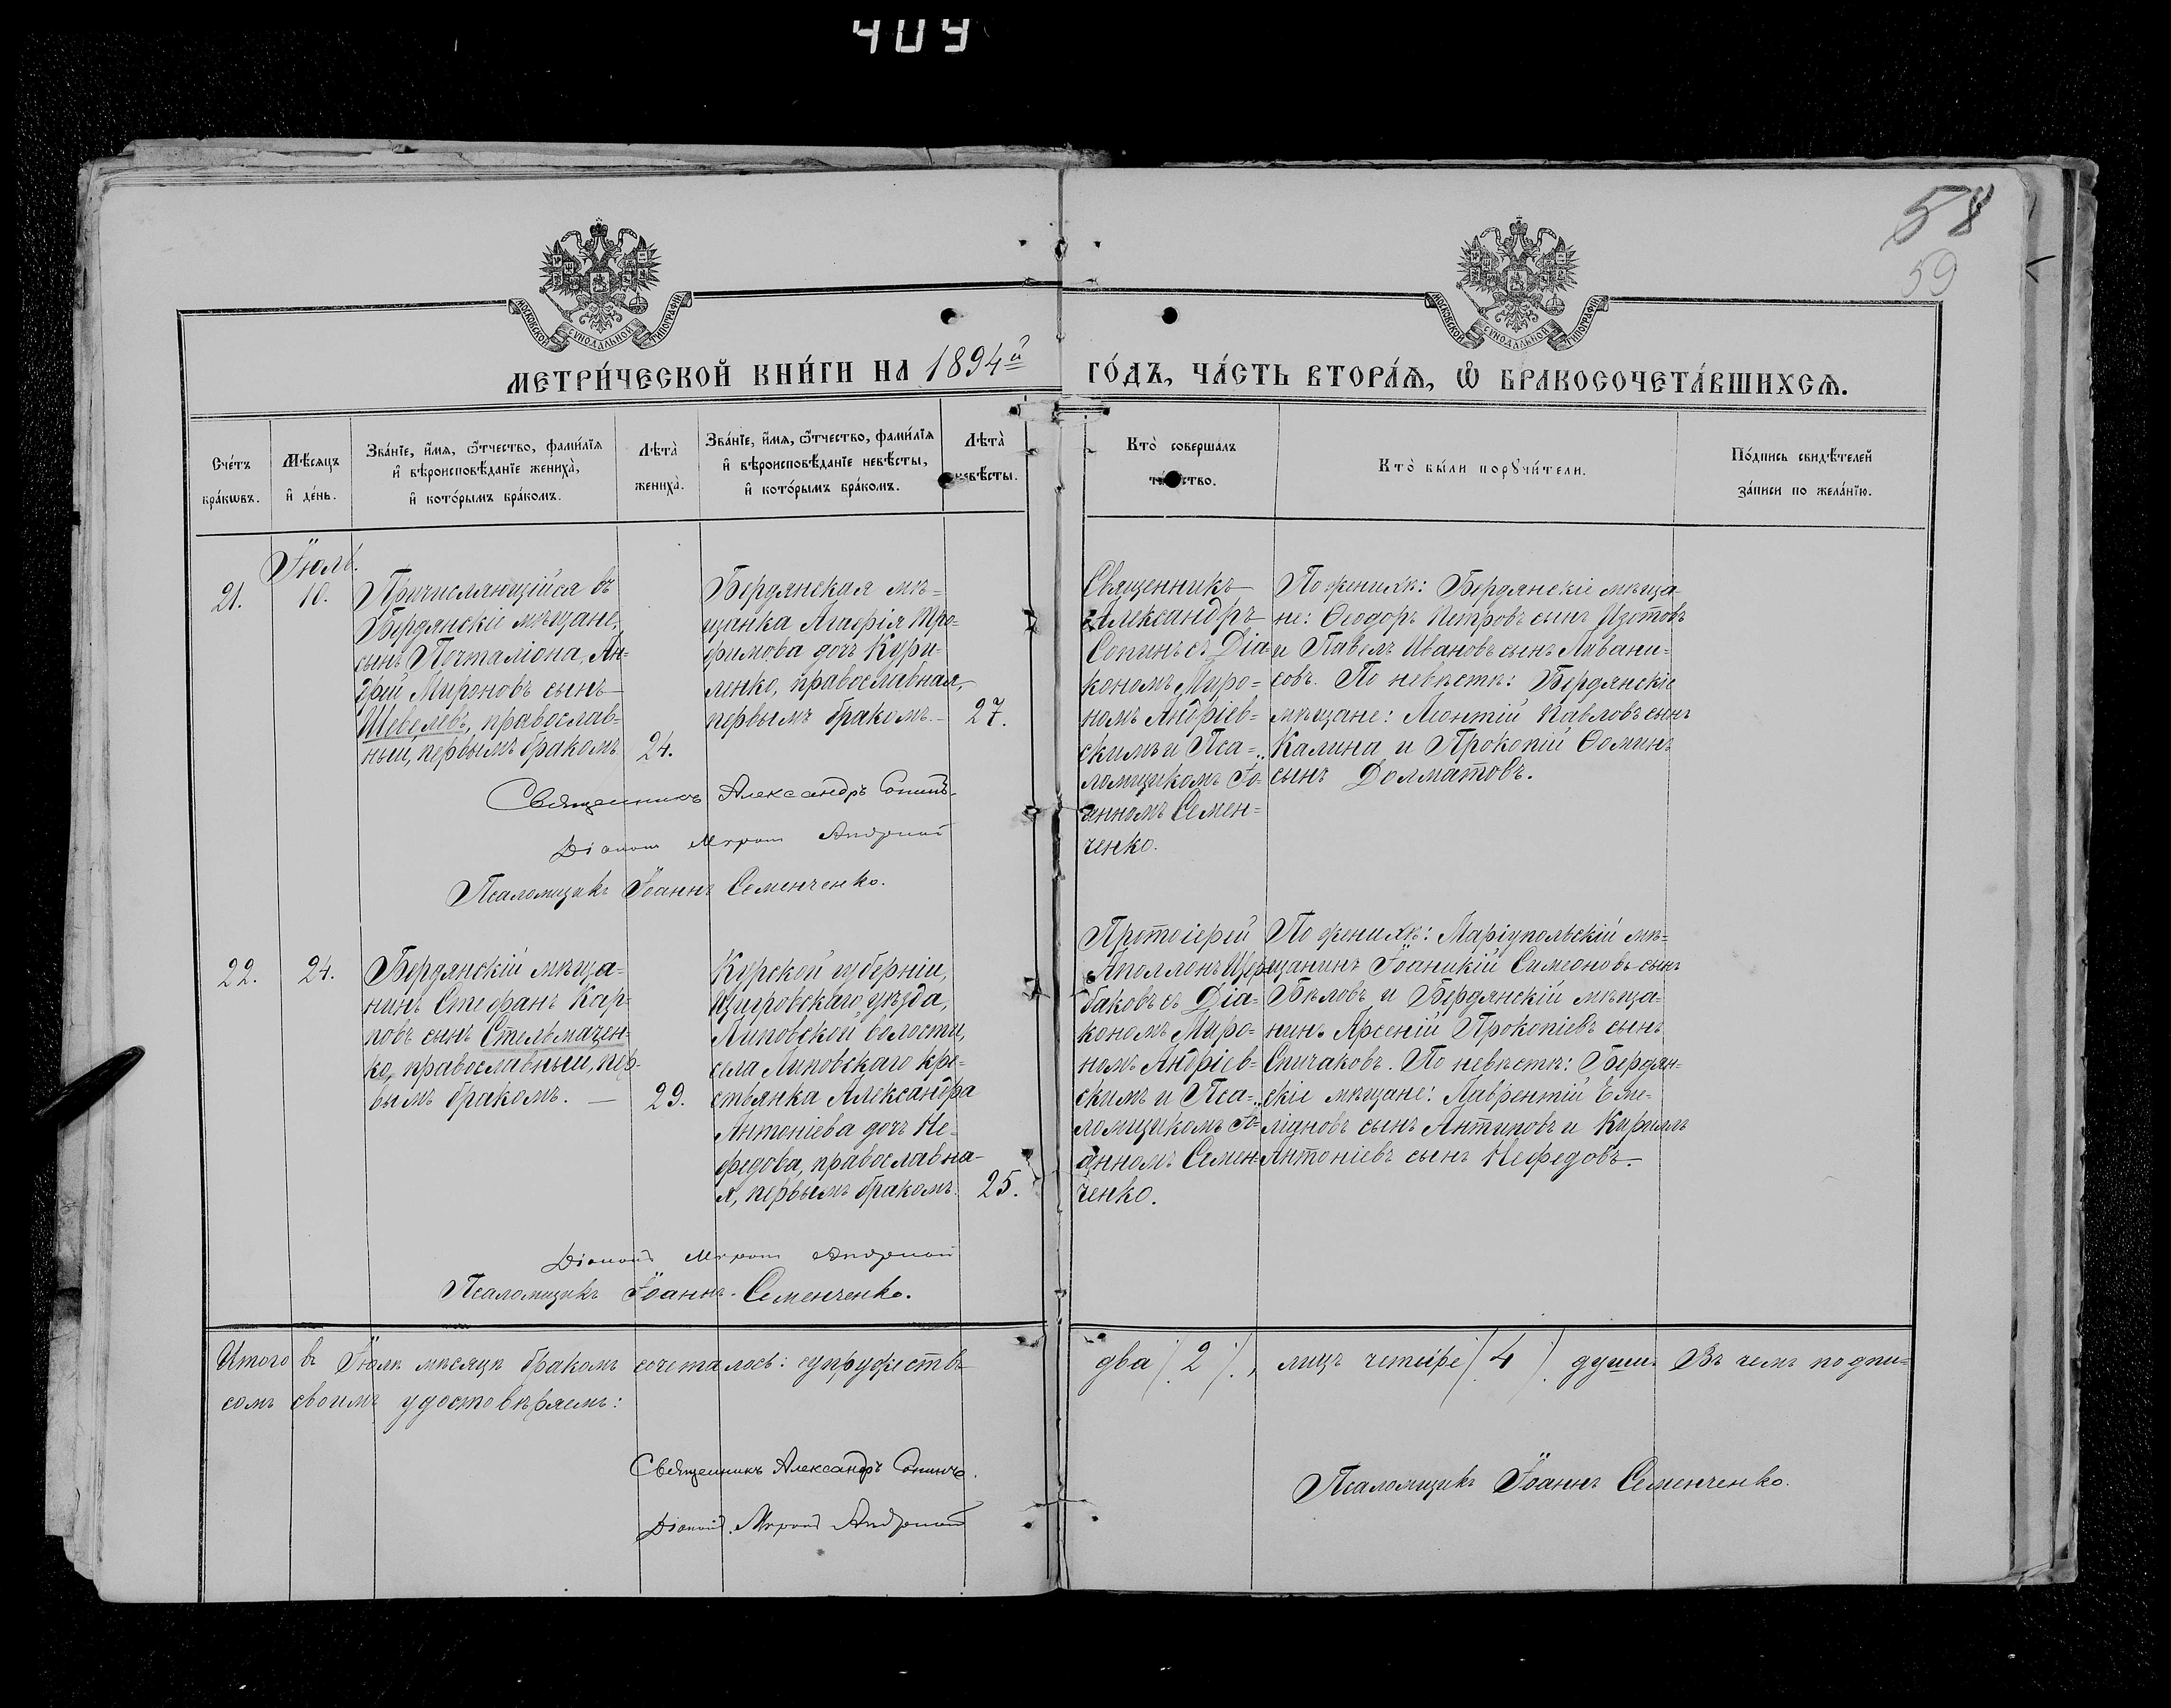 409
58
59
МОСКОВСКОЙ СѴНОДАЛЬНОЙ ТИПОГРАФІИ
МОСКОВСКОЙ СѴНОДАЛЬНОЙ ТИПОГРАФІИ
МЕТРИ́ЧЕСКОЙ КНИ́ГИ НА 1894й ГО́ДЪ, ЧА́СТЬ ВТОРА́Ѧ, Ѡ҆ БРАКОСОЧЕТА́ВШИХСѦ.
Сче́тъ
бра́кωвъ.
Мѣ́сяцъ
и҆ де́нь.
Зва́нїе, и҆́мѧ, ѻ҆́тчество, фами́лїѧ
и҆ вѣроисповѣ́данїе жениха̀,
и҆ кото́рымъ бра́комъ.
Лѣта̀
жениха̀.
Зва́нїе, и҆́мѧ, ѻ҆́тчество, фами́лїѧ
и҆ вѣроисповѣ́данїе невѣ́сты,
и҆ кото́рымъ бра́комъ.
Лѣта̀
невѣ́сты.
Кто̀ соверша́лъ
та́инство.
Кто̀ бы́ли порꙋчи́тели.
По́дпись свидѣ́телей
за́писи по жела́нїю.
Іюль.
21.
10.
Причисляющійся въ
Бердянскіе мѣщане,
сынъ Почталіона, Ан-
дрей Мироновъ сынъ
Шевелевъ, православ-
ный, первымъ бракомъ
24.
Бердянская мѣ-
щанка Агафія Тро-
фимова дочь Кури-
ленко, православная,
первымъ бракомъ.
27.
Священникъ
Александръ
Сопинъ съ Діа-
кономъ Миро-
номъ Андріев-
скимъ и Пса-
ломщикомъ Іо-
анномъ Семен-
ченко.
По женихѣ: Бердянскіе мѣща-
не: Ѳеодоръ Петровъ сынъ Изотовъ
и Павелъ Ивановъ сынъ Ливани-
совъ. По невѣстѣ: Бердянскіе
мѣщане: Леонтій Павловъ сынъ
Калина и Прокопій Ѳоминъ
сынъ Долматовъ.
Священникъ Александръ Сопинъ.
Діаконъ Миронъ
Псаломщикъ Іоаннъ Семенченко.
22.
24.
Бердянскій мѣща-
нинъ Стефанъ Кар-
повъ сынъ Стельмачен-
ко, православный, пер-
вымъ бракомъ. —
29.
Курской губерніи,
Щигровскаго уѣзда,
Липовской волости,
села Липовскаго кре-
стьянка Александра
Антоніева дочь Не-
федова, православна-
я, первымъ бракомъ.
25.
Протоіерей
Аполлонъ Щер-
баковъ съ Діа-
кономъ Миро-
номъ Андріев-
скимъ и Пса-
ломщикомъ Іо-
анномъ Семен-
ченко.
По женихѣ: Маріупольскій мѣ-
щанинъ Іоаникій Симеоновъ сынъ
Бѣловъ и Бердянскій мѣща-
нинъ Арсеній Прокопіевъ сынъ
Спичаковъ. По невѣстѣ: Бердян-
скіе мѣщане: Лаврентій Еме-
ліановъ сынъ Антиповъ и Кириллъ
Антоніевъ сынъ Нефедовъ.
Діаконъ Миронъ
Псаломщикъ Іоаннъ Семенченко.
Итого въ Іюлѣ мѣсяцѣ бракомъ сочеталось: супружествъ два /.2./, лицъ четыре /.4./ душъ. Въ чемъ подпи-
сомъ своимъ удостовѣряемъ:
Священникъ Александръ Сопинъ.
Діаконъ Миронъ
Псаломщикъ Іоаннъ Семенченко.